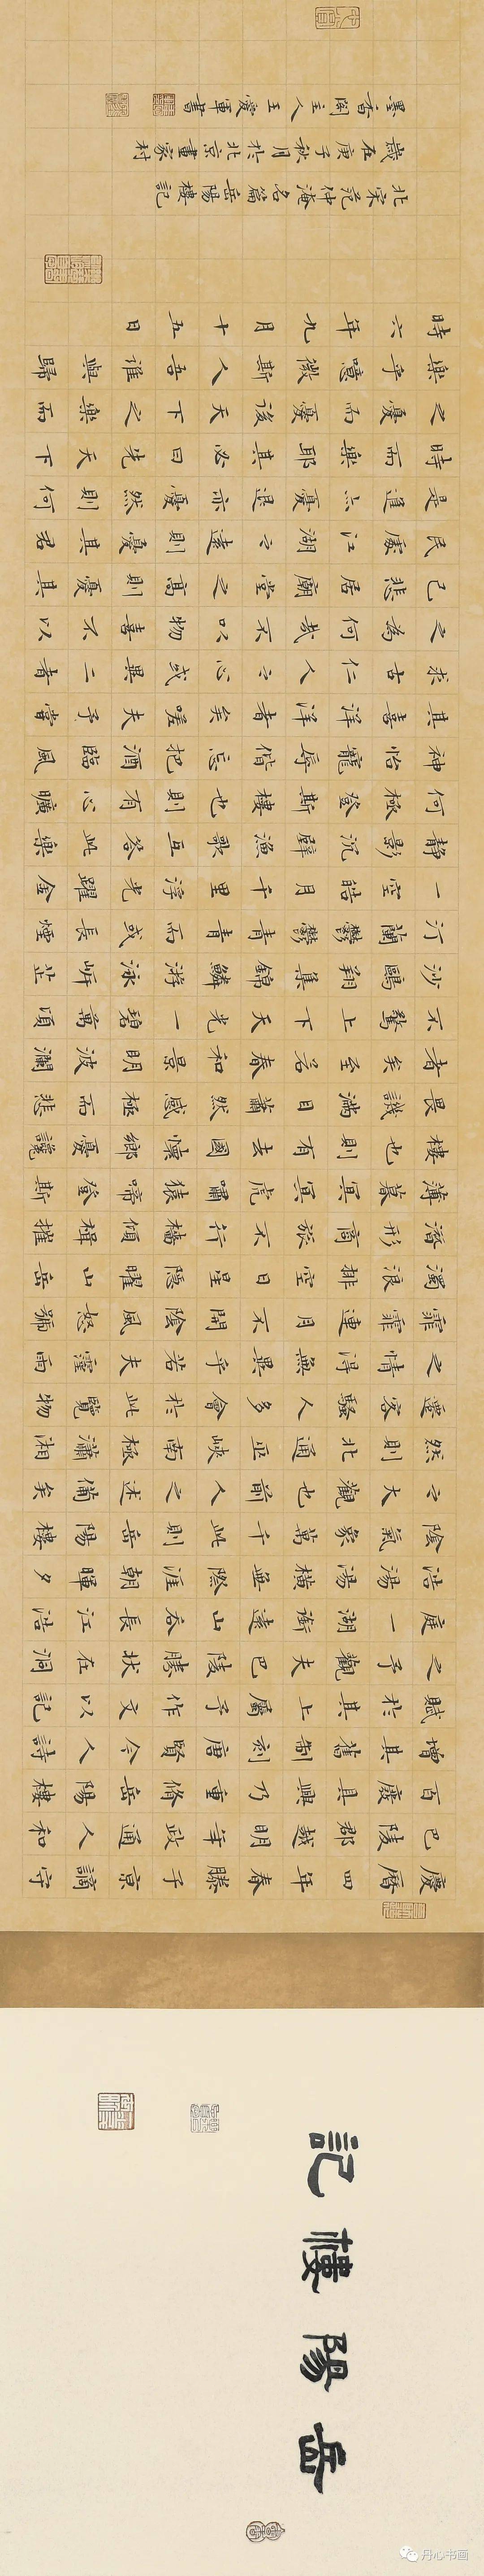 岳陽樓記
慶曆四年春滕子京謫守
巴陵郡越明年政通人和
百廢具興乃重脩岳陽樓
增其舊制刻唐賢今人詩
賦於其上屬予作文以記
之予觀夫巴陵勝狀在洞
庭一湖銜遠山吞長江浩
浩湯湯橫無際涯朝暉夕
陰氣象萬千此則岳陽樓
之大觀也前人之述備矣
然則北通巫峽南極瀟湘
遷客騷人多會於此覽物
之情得無異乎若夫霪雨
霏霏連月不開陰風怒號
濁浪排空日星隱曜山岳
潛形商旅不行檣傾楫摧
薄暮冥冥虎嘯猿啼登斯
樓也則有去國懷鄉憂讒
畏譏滿目蕭然感極而悲
者矣至若春和景明波瀾
不驚上下天光一碧萬頃
沙鷗翔集錦鱗游泳岸芷
汀蘭鬱鬱青青而或長煙
一空皓月千里浮光躍金
靜影沉璧漁歌互答此樂
何極登斯樓也則有心曠
神怡寵辱偕忘把酒臨風
其喜洋洋者矣嗟夫予嘗
求古仁人之心或異二者
之為何哉不以物喜不以
己悲居廟堂之高則憂其
民處江湖之遠則憂其君
是進亦憂退亦憂然則何
時而樂耶其必曰先天下
之憂而憂後天下之樂而
樂乎噫微斯人吾誰與歸
時六年九月十五日
北宋范仲淹名篇岳陽樓記
歲在庚子秋月於北京畫家村
墨香閣主人王愛軍書
丹心书画